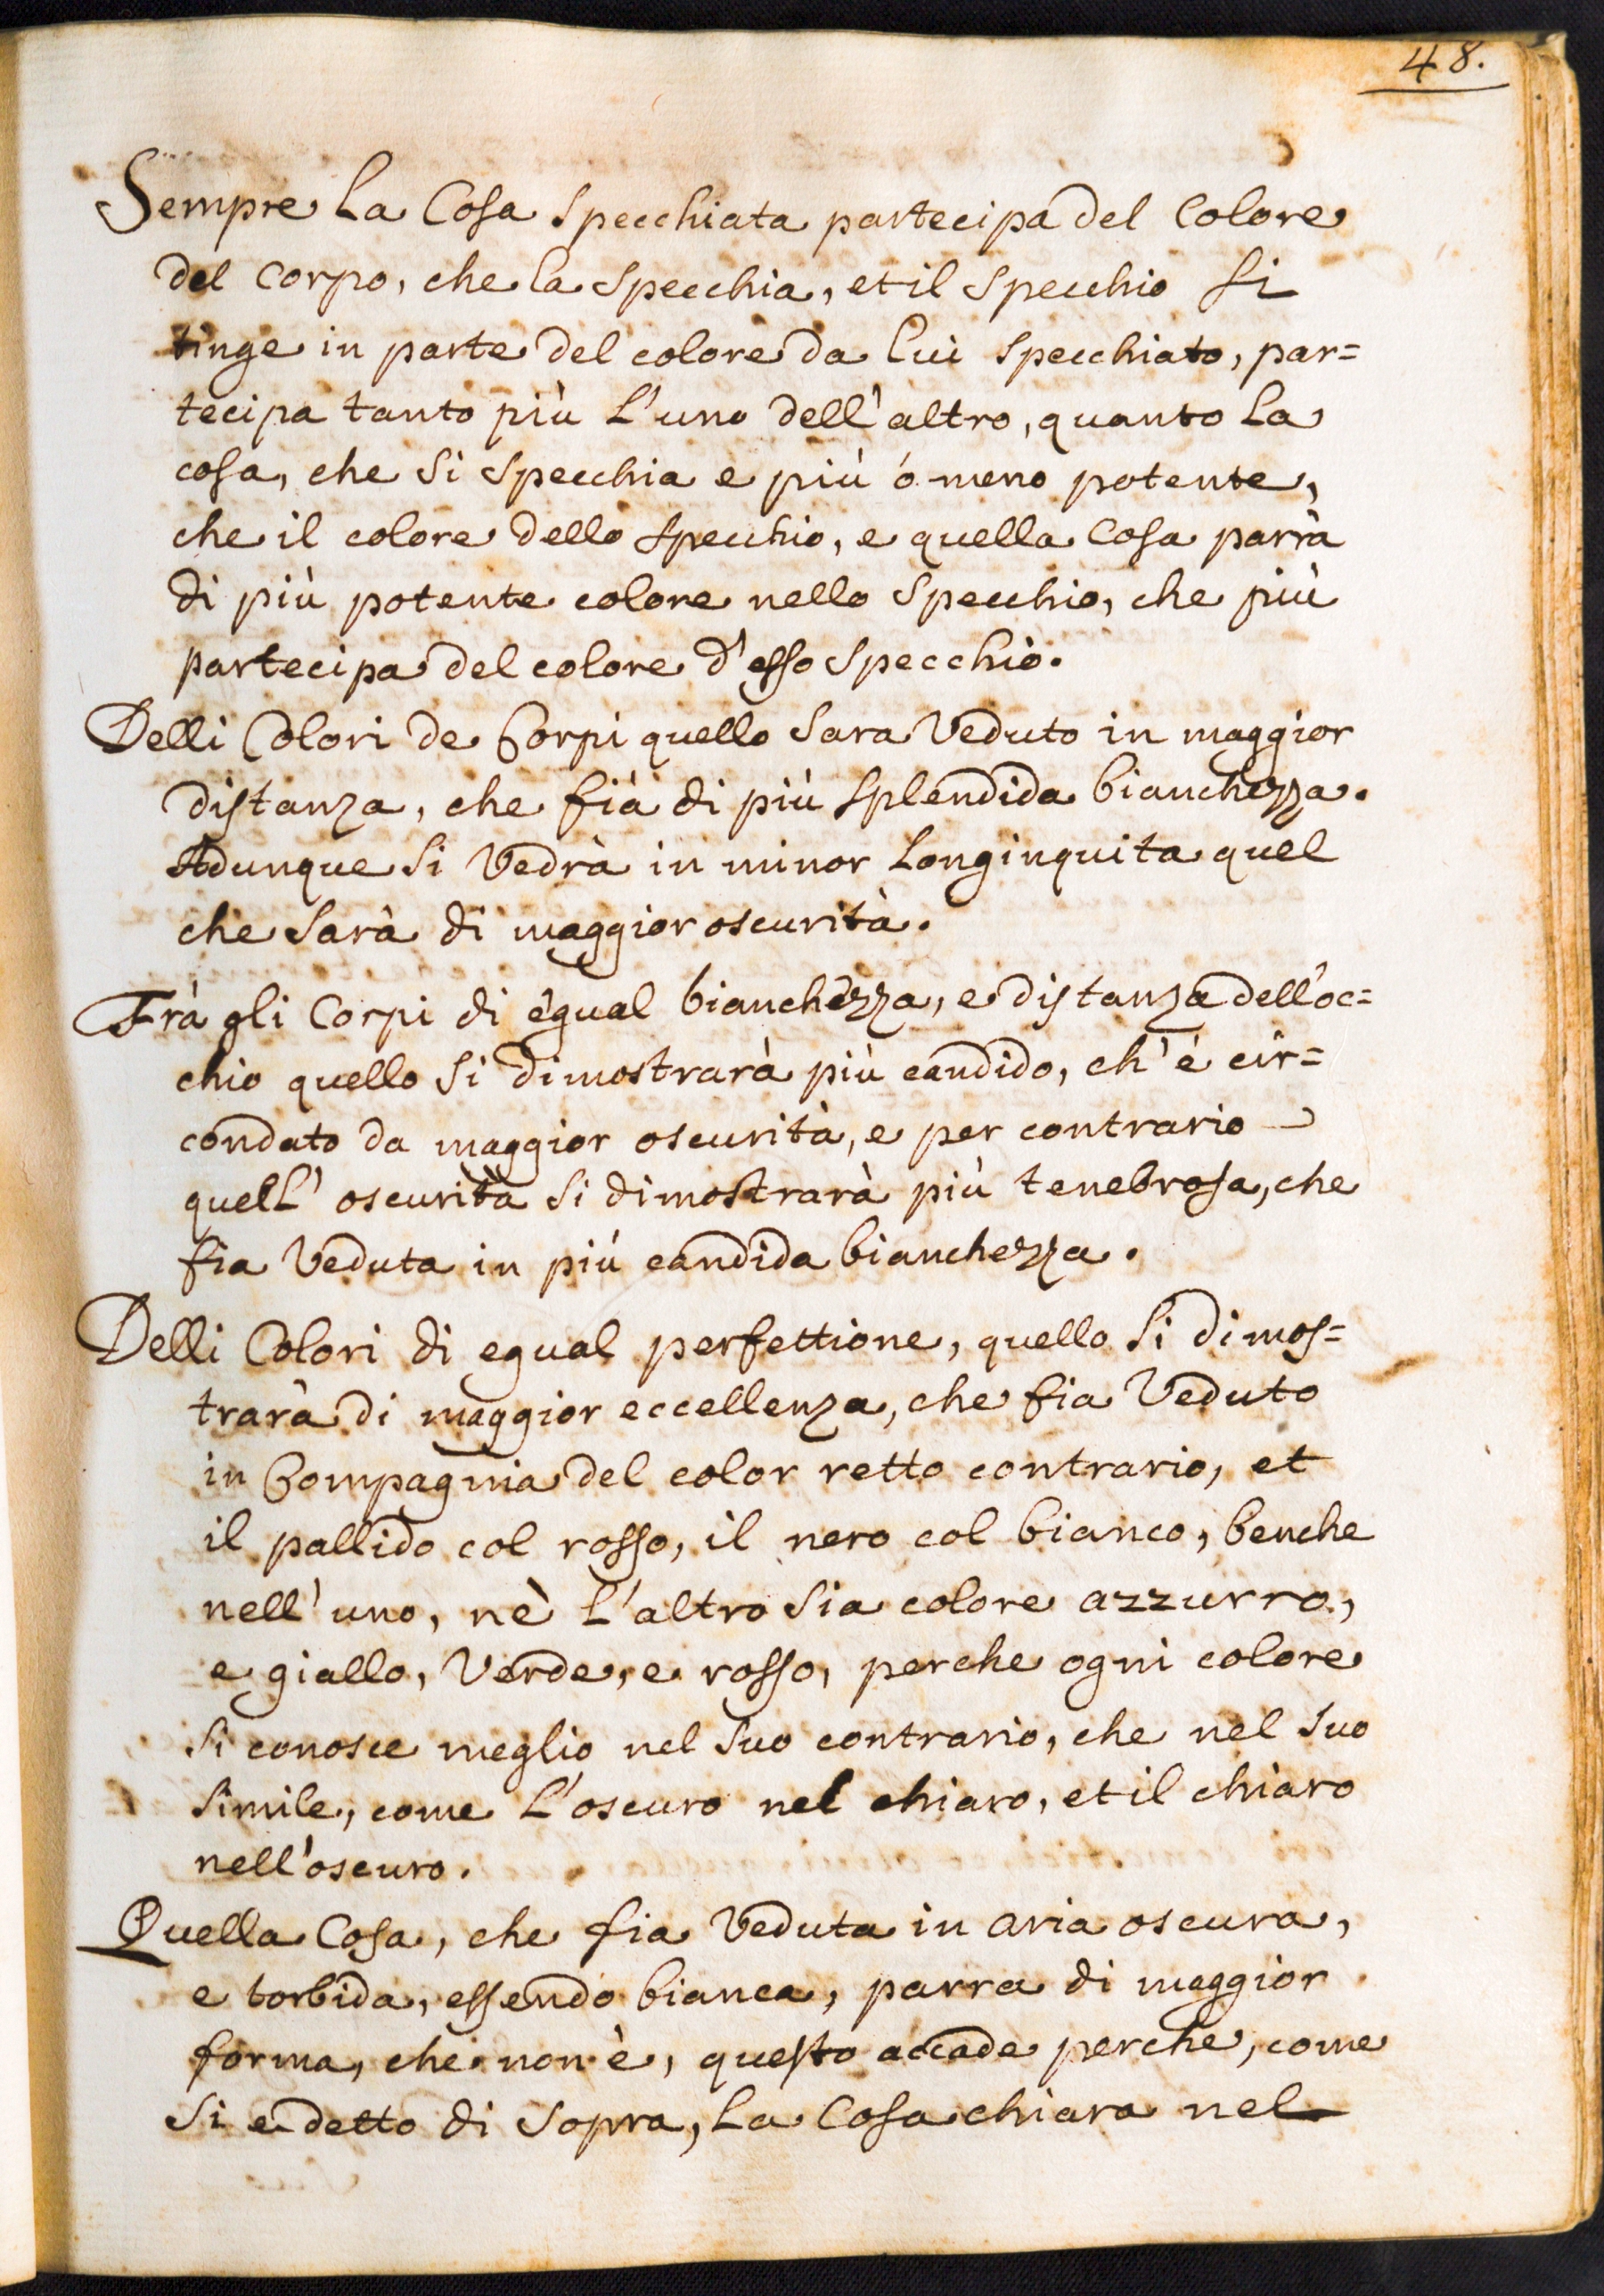 48.
Sempre La Cosa Specchiata partecipa del Colore
del Corpo, che la Specchia, et il Specchio Si
tinge in parte del colore da lui Specchiato, par=
tecipa tanto più L'uno dell'altro, quanto La
cosa, che Si Specchia e più ó meno potente,
che il colore dello Specchio, e quella Cosa parrà
di più potente colore nello Specchio, che più
partecipa del colore d'esso Specchio.
Delli Colori de Corpi quello Sara Veduto in maggior
distanza, che fià di più Splendida bianchezza.
Adunque Si Vedrà in minor Longinquita quel
che Sarà di maggior oscurità.
Frà gli Corpi di égual bianchezza, e distanza dell'oc=
chio quello Si dimostrarà più candido, ch'è cir=
condato da maggior oscurità, e per contrario
quell' oscurità Si dimostrarà più tenebrosa, che
fia Veduta in più candida bianchezza.
Delli Colori di egual perfettione, quello Si dimos=
trarà di maggior eccellenza, che fia Veduto
in Compagnia del color retto contrario, et
il pallido col rosso, il nero col bianco, benche
nell'uno, nè L'altro Sia colore azzurro,
e giallo, Verde, e rosso, perche ogni colore
Si conosce meglio nel Suo contrario, che nel Suo
Simile, come L'oscuro nel chiaro, et il chiaro
nell'oscuro.
Quella Cosa, che fia Veduta in aria oscura,
e torbida, essendo bianca, parra di maggior
forma, che non è, questo accade perche, come
Si e detto di Sopra, La Cosa chiara nel